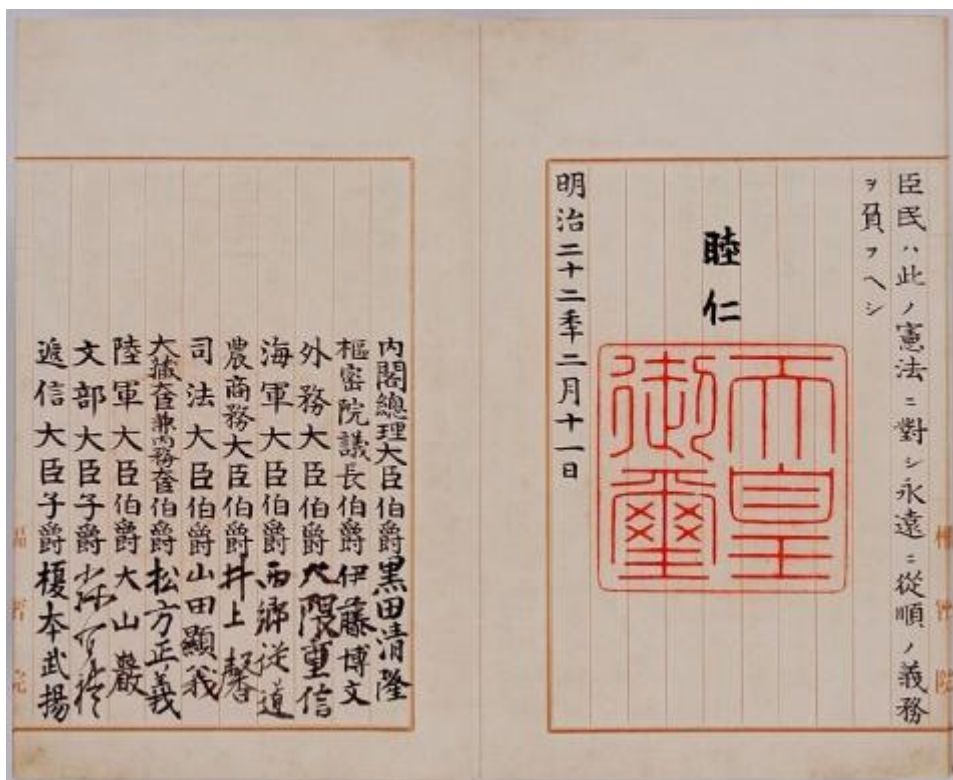 臣民ハ此ノ憲法ニ對シ永遠ニ從順ノ義務
ヲ負フヘシ
睦仁
天皇
御璽
明治二十二年二月十一日
內閣總理大臣伯爵黑田清隆
樞密院議長伯爵伊藤博文
外務大臣伯爵大隈重信
海軍大臣伯爵西鄉從道
農商務大臣伯爵井上馨
司法大臣伯爵山田顯義
大藏大臣兼內務大臣伯爵松方正義
陸軍大臣伯爵大山巖
文部大臣子爵
遞信大臣子爵榎本武揚
樞密院